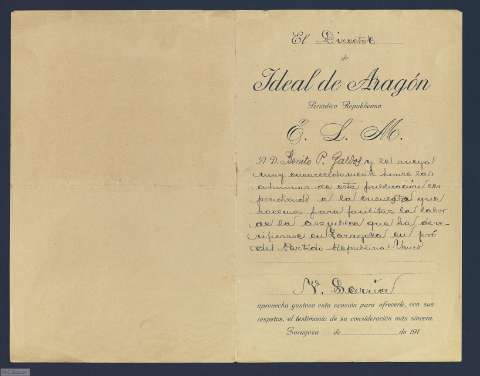 El Director
de
Ideal de Aragón
Periódico Republicano
B. L. M.
A D. Benito P. Galdos y le ruega
muy encarecidamente honre las
columnas de esta publicación con
testando a la encuesta que
hacemos para facilitar la labor
de la Asamblea que ha de ce-
en Zaragoza en pró
del Partido Republicano
aprovecha gustoso esta ocasión para ofrecerle, con sus
respetos, el testimonio de su consideración más sincera.
Zaragoza de de 191